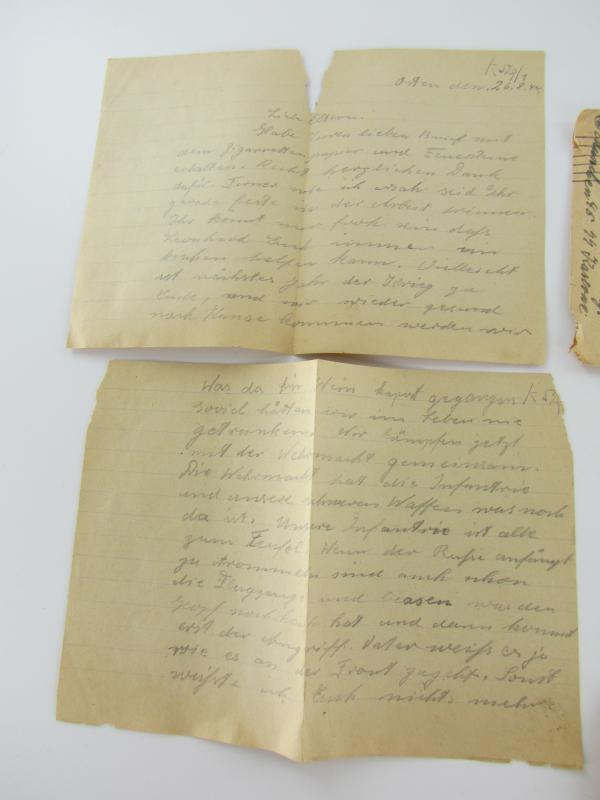 K 59/1
Osten den. 26.8.44.
Liebe Eltern.
Habe Euren lieben Brief mit
dem Zigarettenpapier und Feuersteine
erhalten. Recht herzlichen Dank
dafür. Ferner wie ich ersah seid Ihr
gerade feste in der Arbeit drinnen.
Ihr könnt nur froh sein daß
Leonhard Euch immer ein
bischen helfen kann. Vielleicht
ist nächstes Jahr der Krieg zu
Ende, und wir wieder gesund
nach Hause kommen werden wir
Was da für Wein kaput gegangen K 59
soviel hätten wir im Leben nie
getrunken. Wir kämpfen jetzt
mit der Wehrmacht gemeinsam.
Die Wehrmacht hat die Infantrie
und unsere schweren Waffen was noch
da ist. Unsere Infantrie ist alle
zum Teufel. Wenn der Ruße anfängt
zu trommeln sind auch schon
die Flugzeuge und was den
Kopf noch hat und dann kommt
erst der Angriff. Vater weiß es ja
wie es an der Front zugeht. Sonst
wüßte ich Euch nichts mehr